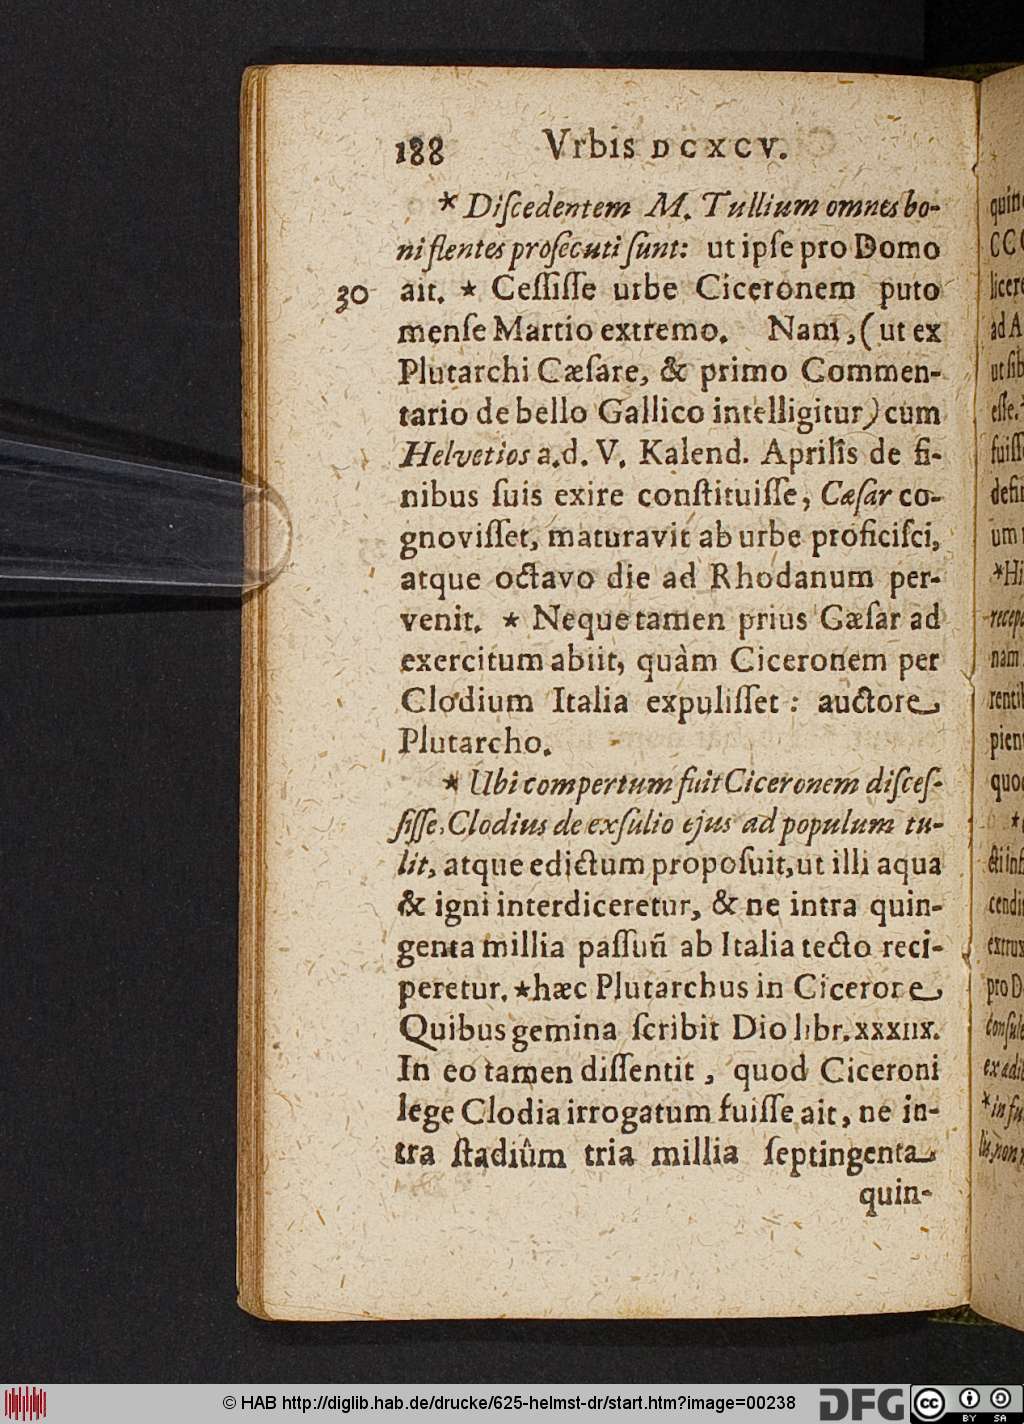 188 Vrbis DCXCV.
* Diſcedentem M. Tullium omnes bo-
ni flentes proſecuti ſunt: ut ipſe pro Domo
30 ait. * Ceſſiſſe urbe Ciceronem puto
menſe Martio extremo. Nam, (ut ex
Plutarchi Cæſare, & primo Commen-
tario de bello Gallico intelligitur) cum
Helvetios a.d. V. Kalend. Aprilîs de fi-
nibus ſuis exire conſtituiſſe, Cæſar co-
gnoviſſet, maturavit ab urbe proficiſci,
atque octavo die ad Rhodanum per-
venit. * Neque tamen prius Gæſar ad
exercitum abiit, quàm Ciceronem per
Clodium Italia expuliſſet: auctore
Plutarcho.
* Ubi compertum fuit Ciceronem diſceſ-
ſiſſe, Clodius de exſulio ejus ad populum tu-
lit, atque edictum propoſuit, ut illi aqua
& igni interdiceretur, & ne intra quin-
genta millia paſſuũ ab Italia tecto reci-
peretur. * hæc Plutarchus in Cicerone
Quibus gemina ſcribit Dio libr. XXXIIX.
In eo tamen diſſentit, quod Ciceroni
lege Clodia irrogatum fuiſſe ait, ne in-
tra ſtadiûm tria millia ſeptingenta
quin-
CCC
licere
ad A
ut ſib
eſſe. *
fuiſſ
defin
um
*Hi
recep
nam
rentib
pien
quo
*
cti inſ
cendi
extrux
pro D
conſule
ex ædi
* in fu
lis non
© HAB http://diglib.hab.de/drucke/625-helmst-dr/start.htm?image=00238
DFG
cc BY SA